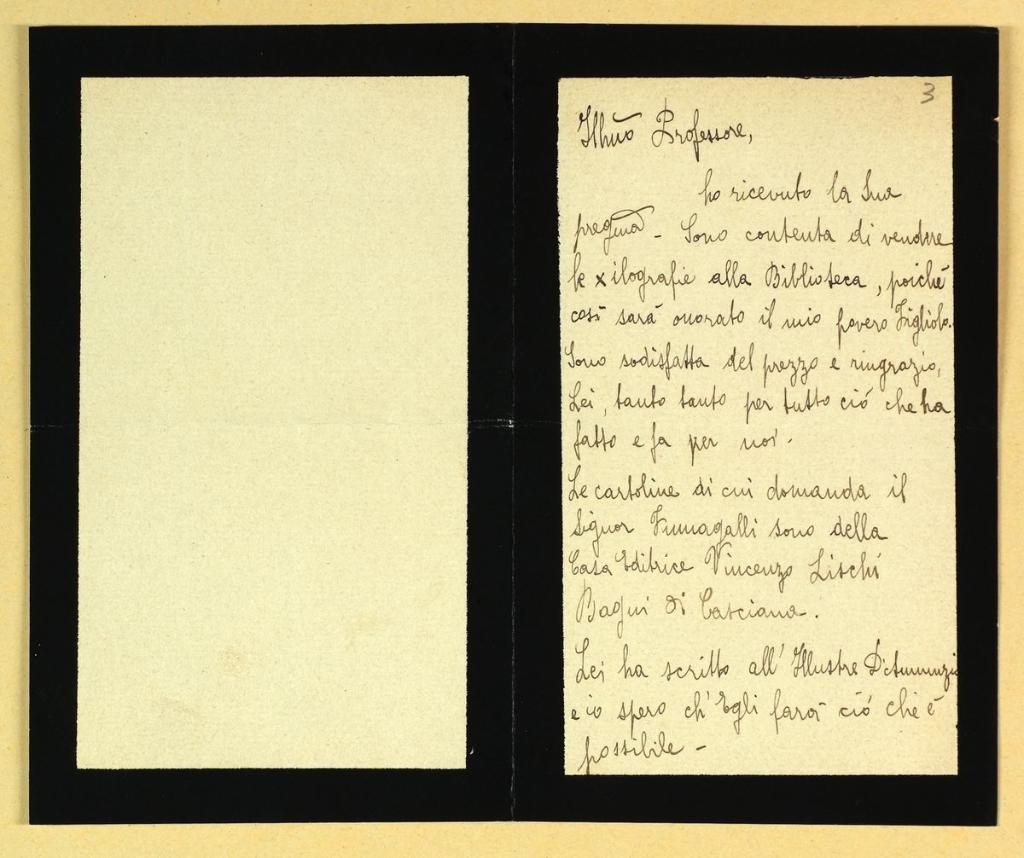 3
Illmo Professore,
ho ricevuto la Sua
pregma - Sono contenta di vendere
le xilografie alla Biblioteca, poiché
così sarà onorato il mio povero Figliolo.
Sono sodisfatta del prezzo e ringrazio,
Lei, tanto tanto per tutto ciò che ha
fatto e fa per noi -
Le cartoline di cui domanda il
Signor Fumagalli sono della
Casa Editrice Vincenzo Lischi
Bagni di Casciana.
Lei ha scritto all' Illustre D'Annunzio
e io spero ch' Egli farà ciò che è
possibile -